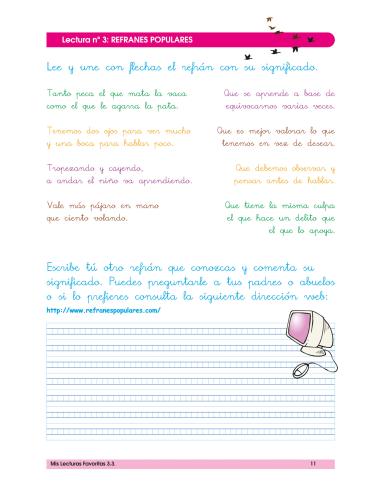 Lectura nº 3: REFRANES POPULARES
Lee y une con flechas el refrán con su significado.
Tanto peca el que mata la vaca
como el que le agarra la pata.
Que se aprende a base de
equivocarnos varias veces.
Tenemos dos ojos para ver mucho
y una boca para hablar poco.
Que es mejor valorar lo que
tenemos en vez de desear.
Tropezando y cayendo,
a andar el niño va aprendiendo.
Que debemos observar y
pensar antes de hablar.
Vale más pájaro en mano
que ciento volando.
Que tiene la misma culpa
el que hace un delito que
el que lo apoya.
Escribe tú otro refrán que conozcas y comenta su
significado. Puedes preguntarle a tus padres o abuelos
o si lo prefieres consulta la siguiente dirección web:
http://www.refranespopulares.com/
Mis Lecturas Favoritas 3.3.
11